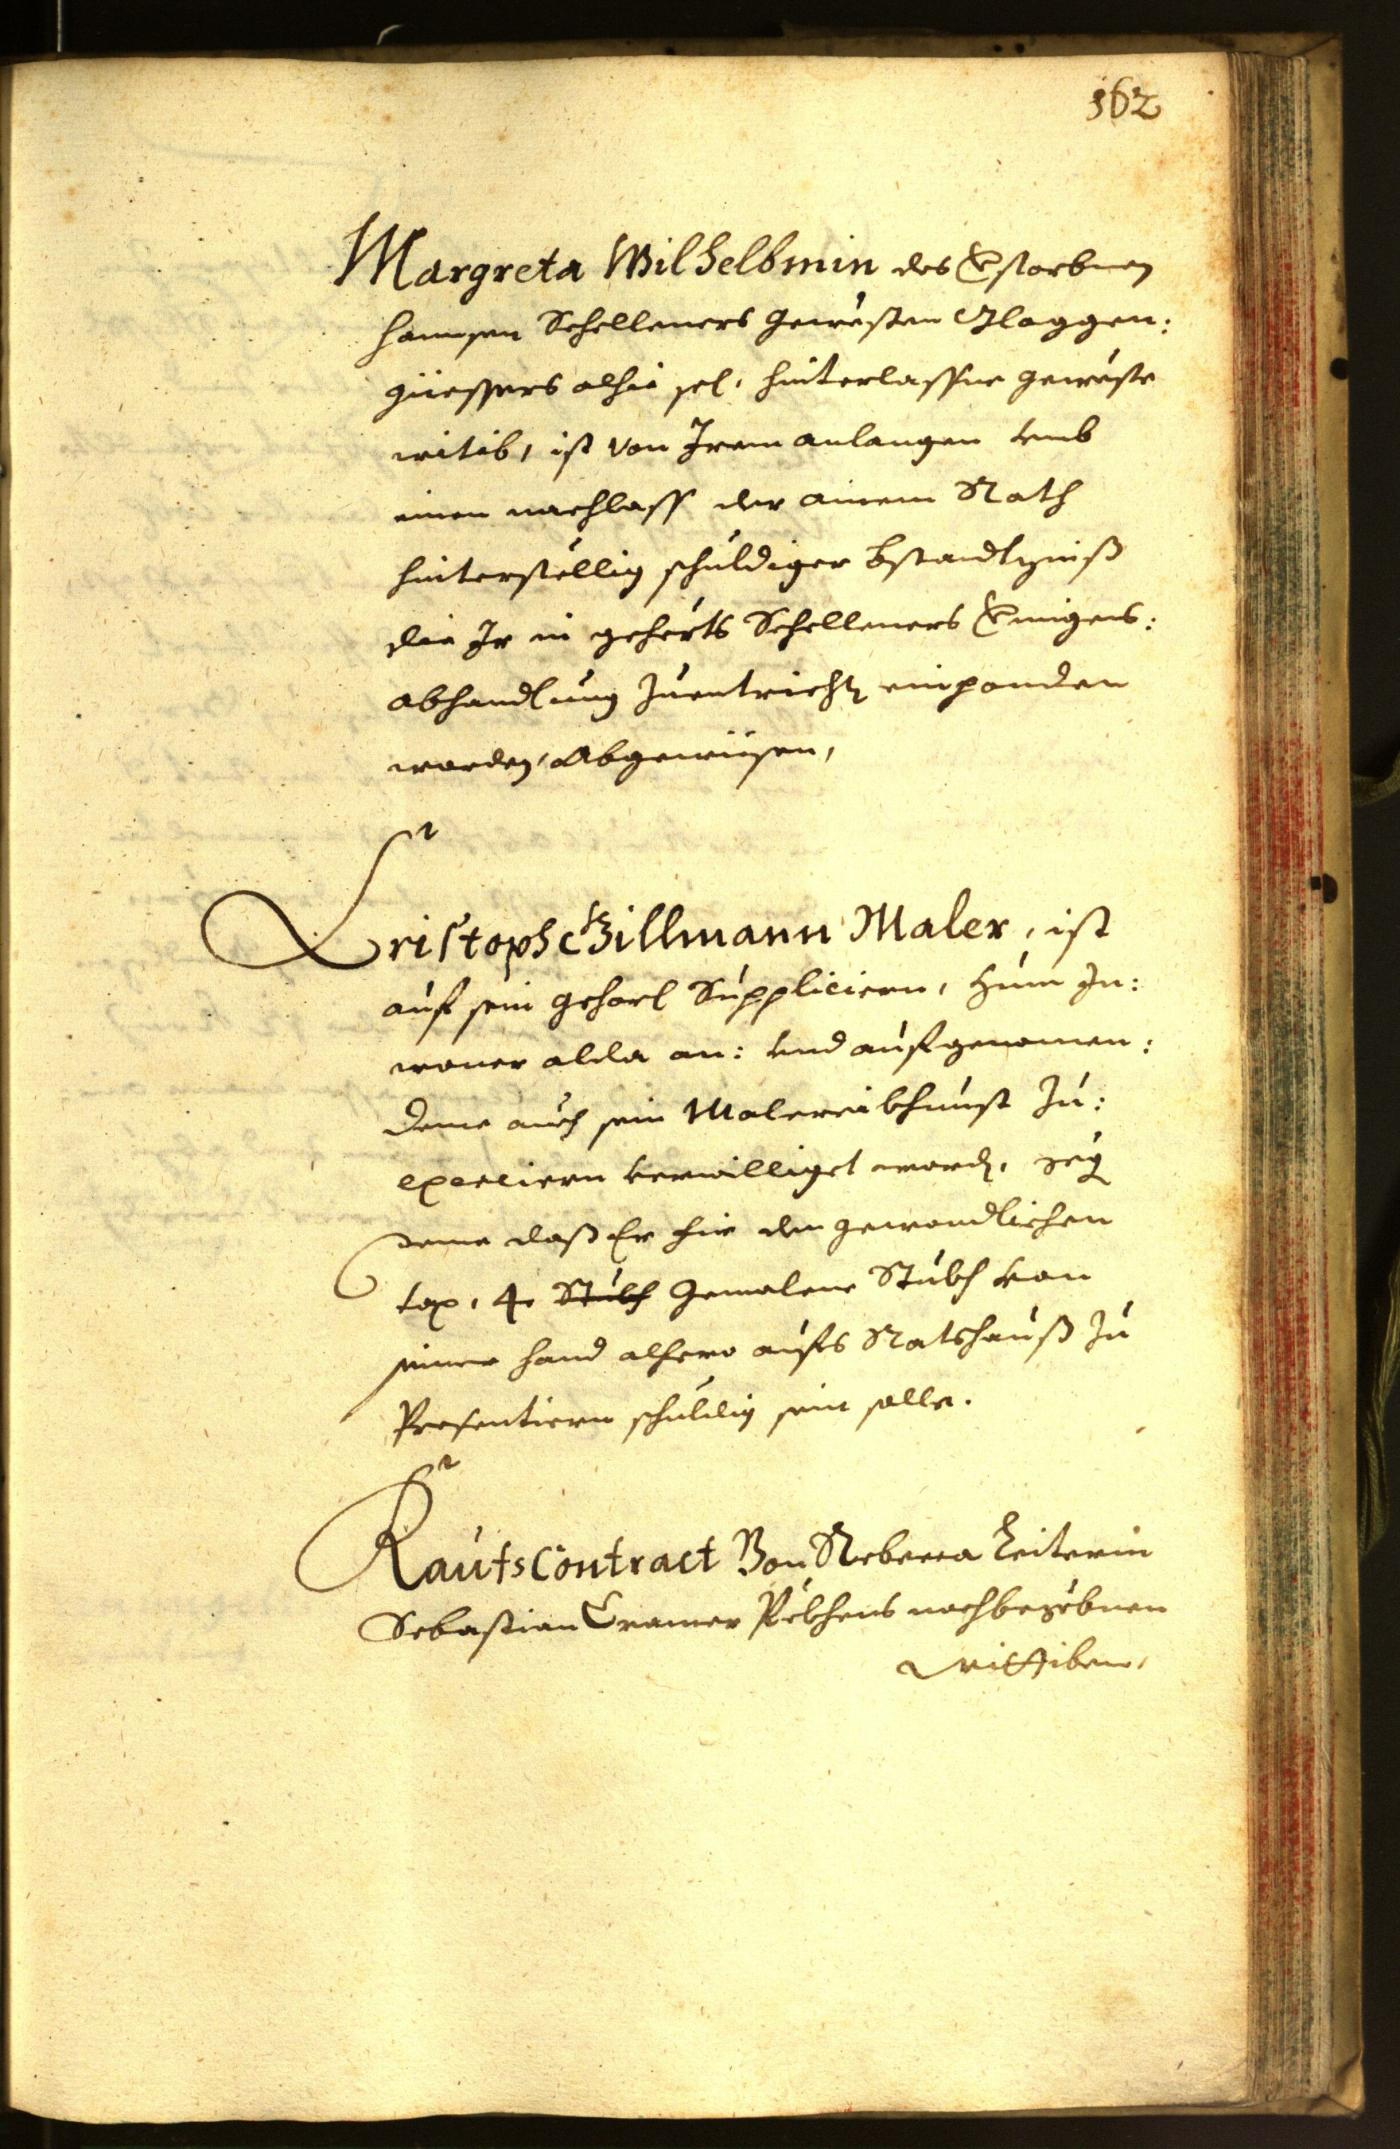 162
Margreta Wilhelbmin des Verstorbnen
hannsen Schelleners Gewesten Gloggen:
güessers alhie sel. hinterlassne geweste
witib, ist von Irem anlangen umb
einen nachlass der ainem Rath
hinterstellig schuldiger bstandtzinß
die Ir in gehörts Schelleners Vermigens:
abhandlung Zuentricht
worden, Abgewisen,
Cristoph Zillmann Maler, ist
auf sein gehors Suppliciern, Zum In:
woner alda an: und aufgenomen:
Deme auch sein Malereikhunst Zu:
exerciern verwilliget word,
deme daß Er für den gewondlichen
tax, 4 Stukh Gemalene Stukh von
seiner hand alhero aufs Ratshauß Zu
Presentiern schuldig sein solle.
Kaufs Contract Von Rebecca Leiterin
Sebastian Cramer Pekhens nachbezöbnen
Wittiben,